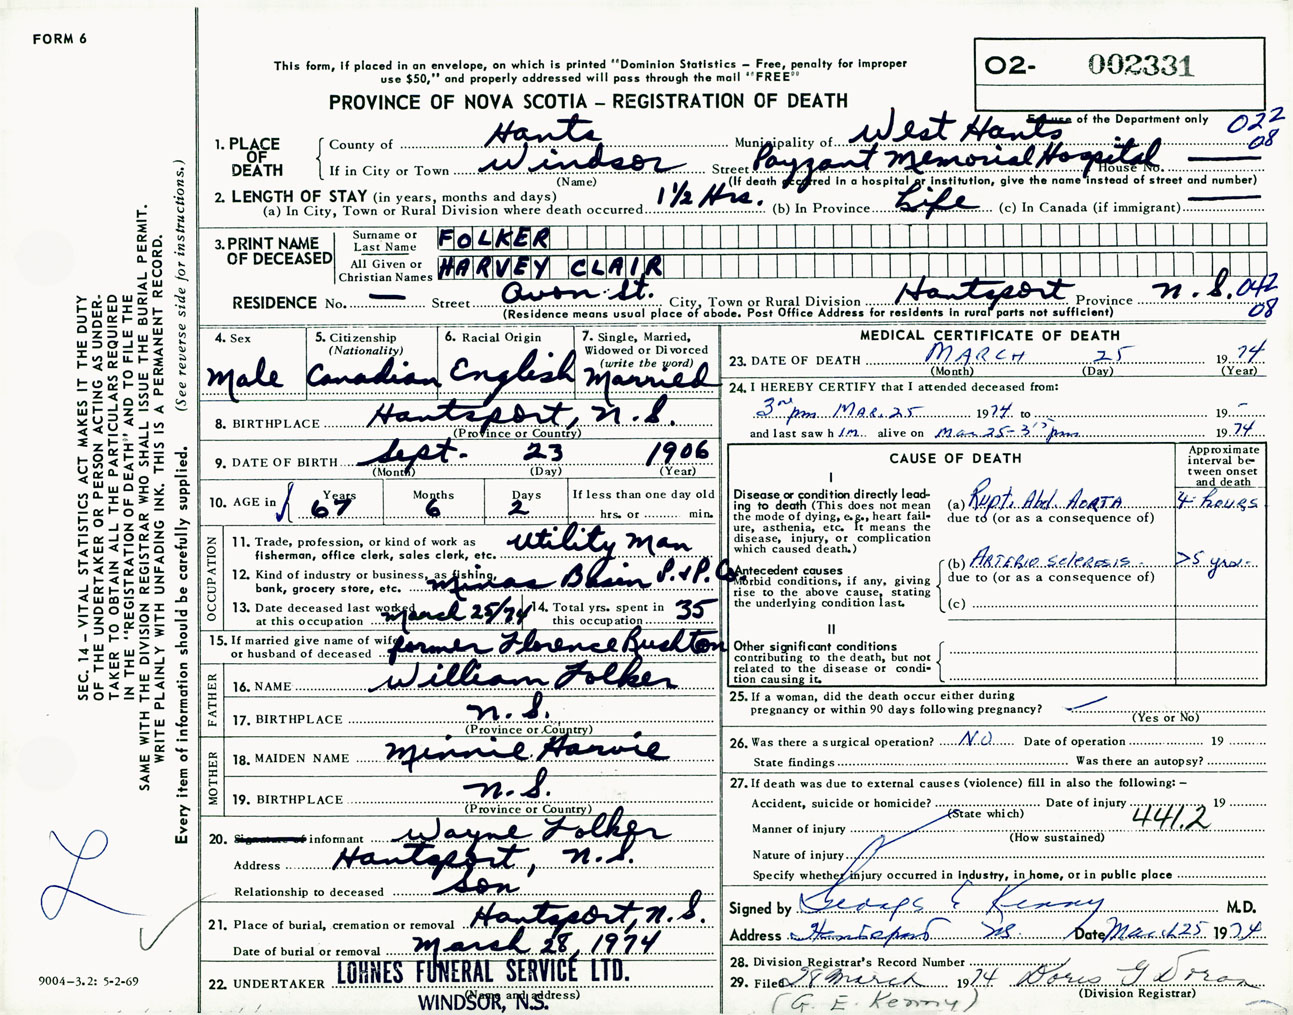 FORM 6
This form, if placed in an envelope, on which is printed "Dominion Statistics – Free, penalty for improper
use $50," and properly addressed will pass through the mail "FREE"
PROVINCE OF NOVA SCOTIA – REGISTRATION OF DEATH
O2- 002331
For use of the Department only
022
08
1. PLACE OF DEATH
County of Hants Municipality of West Hants
If in City or Town Windsor Street Payzant Memorial Hospital House No. —
(Name) (If death occurred in a hospital or institution, give the name instead of street and number)
2. LENGTH OF STAY (in years, months and days)
(a) In City, Town or Rural Division where death occurred 1½ Hrs. (b) In Province Life (c) In Canada (if immigrant) —
3. PRINT NAME OF DECEASED
Surname or Last Name FOLKER
All Given or Christian Names HARVEY CLAIR
RESIDENCE No. — Street Avon St. City, Town or Rural Division Hantsport Province N.S. 042
08
(Residence means usual place of abode. Post Office Address for residents in rural parts not sufficient)
4. Sex
Male
5. Citizenship
(Nationality)
Canadian
6. Racial Origin
English
7. Single, Married,
Widowed or Divorced
(write the word)
Married
8. BIRTHPLACE Hantsport, N.S.
(Province or Country)
9. DATE OF BIRTH Sept. 23 1906
(Month) (Day) (Year)
10. AGE in Years 67 Months 6 Days 2 If less than one day old
hrs. or min.
OCCUPATION
11. Trade, profession, or kind of work as
fisherman, office clerk, sales clerk, etc. Utility Man
12. Kind of industry or business, as fishing,
bank, grocery store, etc. Minas Basin P. & P. Co.
13. Date deceased last worked
at this occupation March 25/74
14. Total yrs. spent in
this occupation 35
15. If married give name of wife
or husband of deceased former Florence Rushton
FATHER
16. NAME William Folker
17. BIRTHPLACE N.S.
(Province or Country)
MOTHER
18. MAIDEN NAME Minnie Harvie
19. BIRTHPLACE N.S.
(Province or Country)
20. Signature of informant Wayne Folker
Address Hantsport, N.S.
Relationship to deceased Son
21. Place of burial, cremation or removal Hantsport, N.S.
Date of burial or removal March 28, 1974
22. UNDERTAKER LOHNES FUNERAL SERVICE LTD.
(Name and address)
WINDSOR, N.S.
MEDICAL CERTIFICATE OF DEATH
23. DATE OF DEATH MARCH 25 1974
(Month) (Day) (Year)
24. I HEREBY CERTIFY that I attended deceased from:
pm Mar. 25 1974 to 19 -
and last saw h im alive on Mar 25 - pm 1974
CAUSE OF DEATH
Approximate
interval be-
tween onset
and death
I
Disease or condition directly lead-
ing to death (This does not mean
the mode of dying, e.g., heart fail-
ure, asthenia, etc. It means the
disease, injury, or complication
which caused death.)
(a) Rupt. Abd. AORTA 4 hours
due to (or as a consequence of)
Antecedent causes
Morbid conditions, if any, giving
rise to the above cause, stating
the underlying condition last.
(b) ARTERIO sclerosis >5 yrs.
due to (or as a consequence of)
(c)
II
Other significant conditions
contributing to the death, but not
related to the disease or condi-
tion causing it.
25. If a woman, did the death occur either during
pregnancy or within 90 days following pregnancy?
(Yes or No)
26. Was there a surgical operation? NO Date of operation 19
State findings Was there an autopsy?
27. If death was due to external causes (violence) fill in also the following: –
Accident, suicide or homicide? Date of injury 19
(State which)
Manner of injury 441.2
(How sustained)
Nature of injury
Specify whether injury occurred in industry, in home, or in public place
Signed by George E Kenny M.D.
Address Hantsport NS Date March 25 1974
28. Division Registrar's Record Number
29. Filed 28 March 1974 Doris G Doran
(Division Registrar)
(G. E. Kenny)
SEC. 14 – VITAL STATISTICS ACT MAKES IT THE DUTY
OF THE UNDERTAKER OR PERSON ACTING AS UNDER-
TAKER TO OBTAIN ALL THE PARTICULARS REQUIRED
IN THE "REGISTRATION OF DEATH" AND TO FILE THE
SAME WITH THE DIVISION REGISTRAR WHO SHALL ISSUE THE BURIAL PERMIT.
WRITE PLAINLY WITH UNFADING INK. THIS IS A PERMANENT RECORD.
Every item of information should be carefully supplied. (See reverse side for instructions.)
9004–3.2: 5-2-69